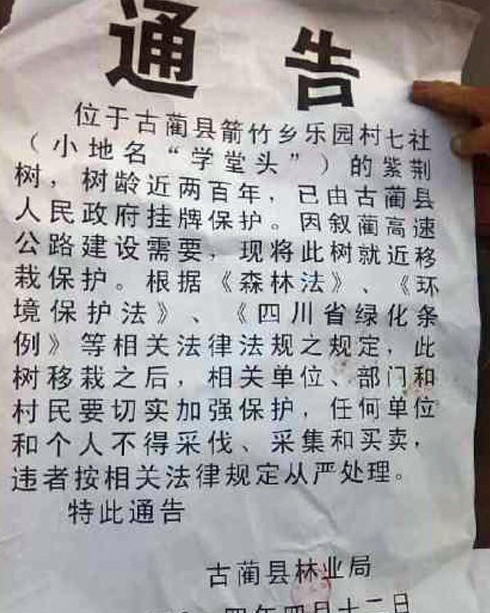 通告
位于古蔺县箭竹乡乐园村七社
（小地名“学堂头”）的紫荆
树，树龄近两百年，已由古蔺县
人民政府挂牌保护。因叙蔺高速
公路建设需要，现将此树就近移
栽保护。根据《森林法》、《环
境保护法》、《四川省绿化条
例》等相关法律法规之规定，此
树移栽之后，相关单位、部门和
村民要切实加强保护，任何单位
和个人不得采伐、采集和买卖，
违者按相关法律规定从严处理。
特此通告
古蔺县林业局
四年四月十二日